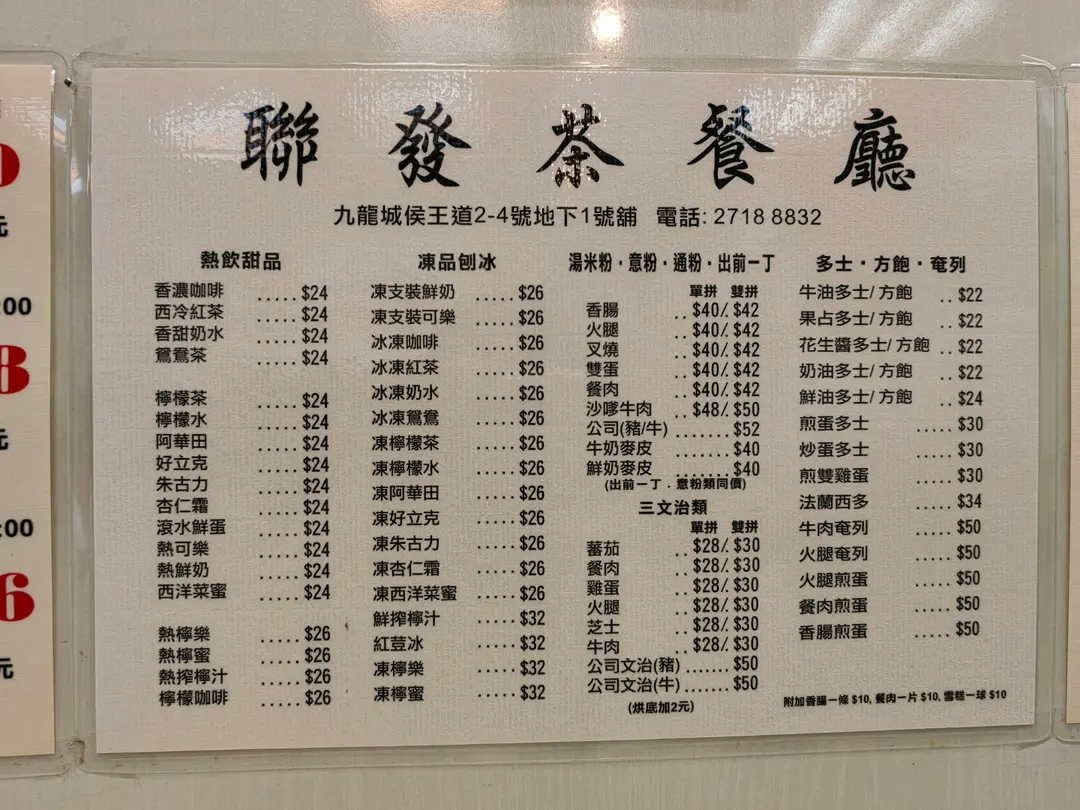 聯發茶餐廳
九龍城侯王道2-4號地下1號舖 電話: 2718 8832
熱飲甜品
香濃咖啡 ..... $24
西冷紅茶 ..... $24
香甜奶水 ..... $24
鴛鴦茶 ..... $24
檸檬茶 ..... $24
檸檬水 ..... $24
阿華田 ..... $24
好立克 ..... $24
朱古力 ..... $24
杏仁霜 ..... $24
滾水鮮蛋 ..... $24
熱可樂 ..... $24
熱鮮奶 ..... $24
西洋菜蜜 ..... $24
熱檸樂 ..... $26
熱檸蜜 ..... $26
熱搾檸汁 ..... $26
檸檬咖啡 ..... $26
凍品刨冰
凍支裝鮮奶 ..... $26
凍支裝可樂 ..... $26
冰凍咖啡 ..... $26
冰凍紅茶 ..... $26
冰凍奶水 ..... $26
冰凍鴛鴦 ..... $26
凍檸檬茶 ..... $26
凍檸檬水 ..... $26
凍阿華田 ..... $26
凍好立克 ..... $26
凍朱古力 ..... $26
凍杏仁霜 ..... $26
凍西洋菜蜜 ..... $26
鮮搾檸汁 ..... $32
紅荳冰 ..... $32
凍檸樂 ..... $32
凍檸蜜 ..... $32
湯米粉・意粉・通粉・出前一丁
單拼 雙拼
香腸 .. $40/ $42
火腿 .. $40/ $42
叉燒 .. $40/ $42
雙蛋 .. $40/ $42
餐肉 .. $40/ $42
沙嗲牛肉 .. $48/ $50
公司(豬/牛) ....... $52
牛奶麥皮 ....... $40
鮮奶麥皮 ....... $40
(出前一丁．意粉類同價)
三文治類
單拼 雙拼
蕃茄 .. $28/ $30
餐肉 .. $28/ $30
雞蛋 .. $28/ $30
火腿 .. $28/ $30
芝士 .. $28/ $30
牛肉 .. $28/ $30
公司文治(豬) ....... $50
公司文治(牛) ....... $50
(烘底加2元)
多士・方飽・奄列
牛油多士/ 方飽 .. $22
果占多士/ 方飽 .. $22
花生醬多士/ 方飽 .. $22
奶油多士/ 方飽 .. $22
鮮油多士/ 方飽 .. $24
煎蛋多士 ..... $30
炒蛋多士 ..... $30
煎雙雞蛋 ..... $30
法蘭西多 ..... $34
牛肉奄列 ..... $50
火腿奄列 ..... $50
火腿煎蛋 ..... $50
餐肉煎蛋 ..... $50
香腸煎蛋 ..... $50
附加香腸一條 $10, 餐肉一片 $10, 雪糕一球 $10
元
:00
8
元
:00
6
元